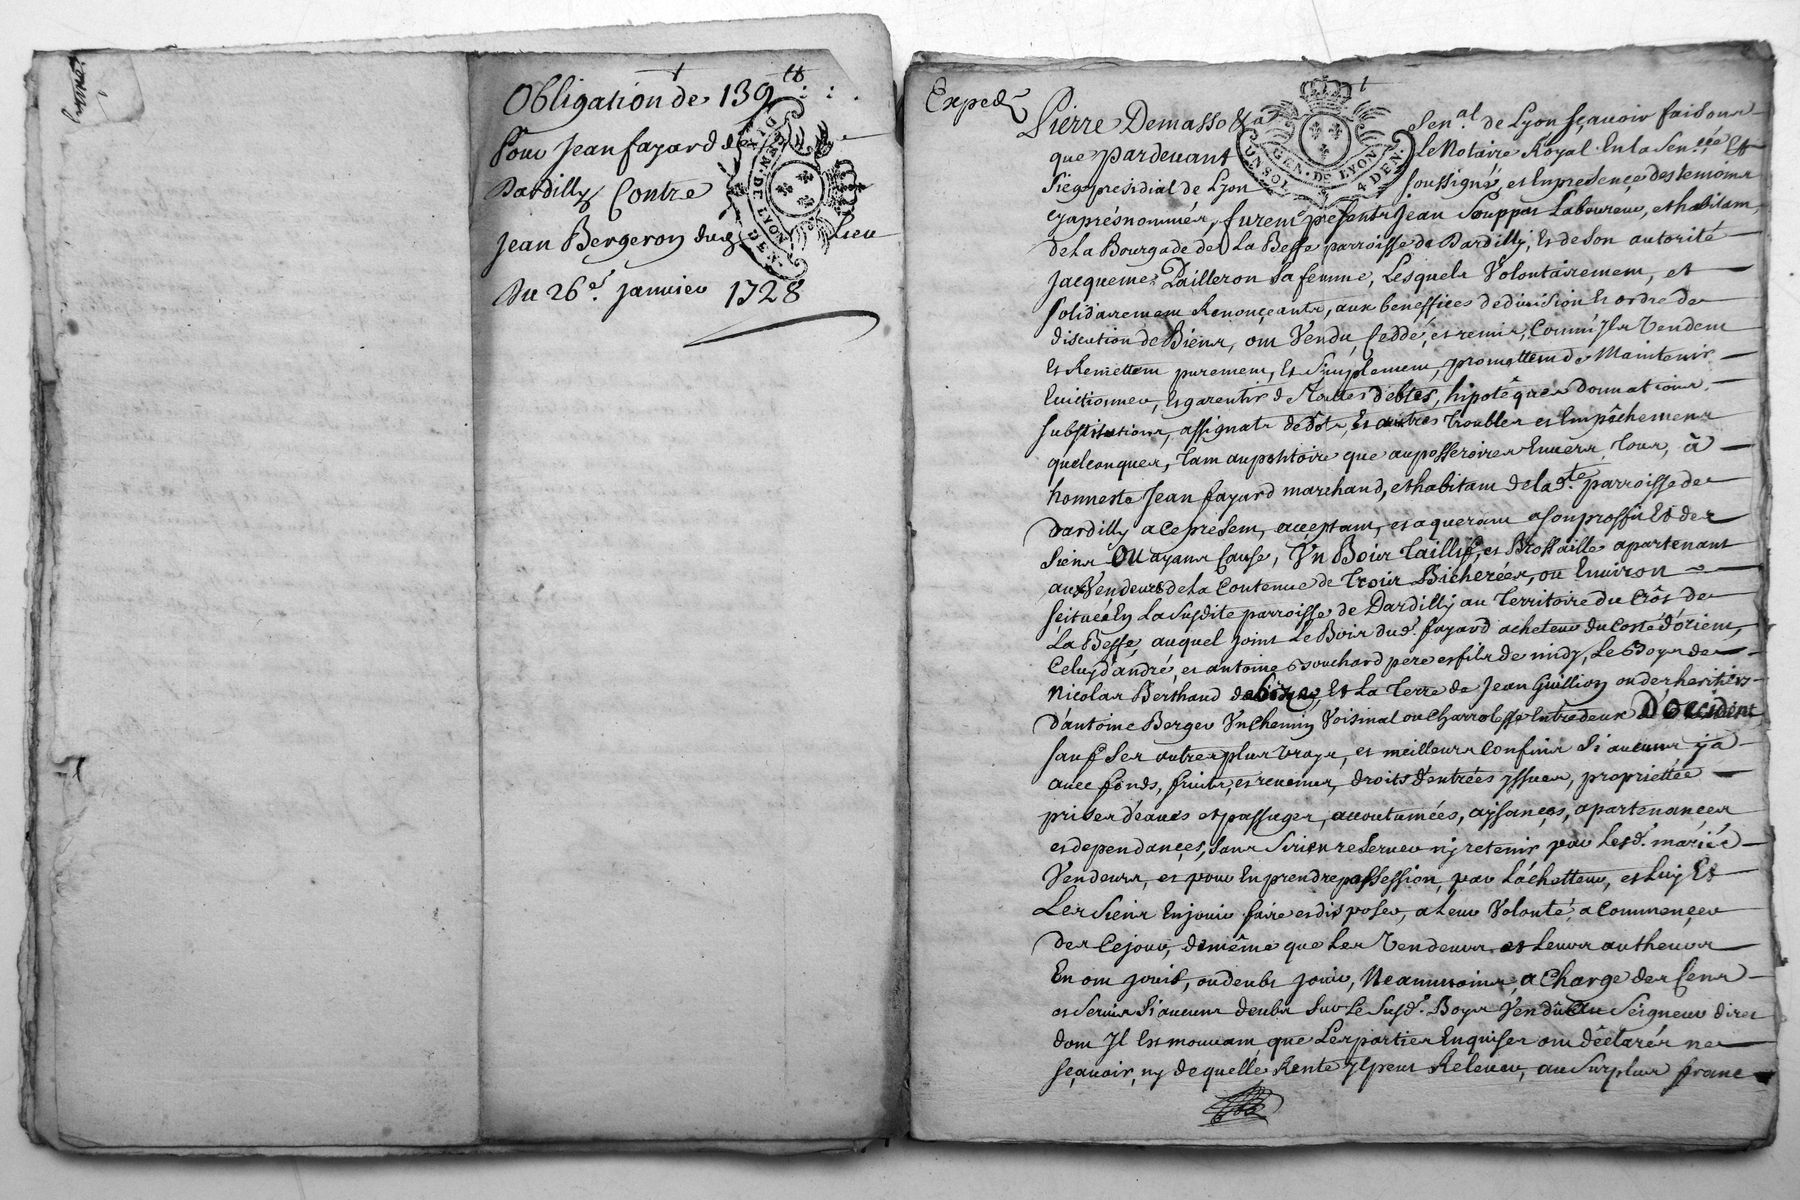 Obligation de 139 ₶
Pour Jean fayard de
Dardilly Contre
Jean Bergeron dud. Lieu
Du 26e. janvier 1728
GEN. DE LYON
DEN.
Exped.
Pierre Demasso Sen.al de Lyon sçavoir faisons
que pardevant Le Notaire Royal En la Sen.cée Et
Siege presidial de Lyon soussigné, et En presence des temoins
cyaprés nommés, furent presents Jean Souppat Laboureur, et habitant
de La Bourgade de La Beffe parroisse de Dardilly, Et de Son autorité
Jacqueme Pailleron sa femme, Lesquels Volontairement, et
solidairement Renonçeants, aux beneffices de division Et ordre de
discution de Biens, ont Vendu, Cedde, et remis, Comm'Ils Vendent
Et Remettent purement, Et Simplement, promettent de Maintenir
Euictionner, Et garentir de Toutes debtes, hipotêques donnations
substitutions, assignats de dots, Et autres troubles et Empêchements
quelconques, tant au petitoire que au possessoires Envers Tous, à
honneste Jean fayard marchand, et habitant de lad.te parroisse de
Dardilly a ce present, acceptant, et aquerant a Son proffit Et des
Siens OU ayans Cause, Un Bois Taillif, et Brossaille apartenant
aux Vendeurs de La Contenue de Trois Bicherées, ou Environ
scituée En La Susdite parroisse de Dardilly au Territoire du Crôs de
La Beffe, auquel joint Le Bois dud. fayard acheteur du Costé d'orient,
Celuy d'andré, et antoine Bouchard pere et fils de midy, Le Boys de
Nicolas Berthaud de bize, Et La Terre de Jean Guillion ou des heritiers
d'antoine Berger Un Chemin Voisinal ou CharroLesse Entre deux D'occident
sauf Ses autres plus vrays, et meilleurs Confins Si aucuns y a
avec fonds, fruits, et revenus, droits d'entrées yssues, propriettée
prises d'eaues et passages, accoutumées, aysançes, apartenançes
et dependançes, Sans S'irien reServer ny retenir par Lesd. mariés
Vendeurs, et pour En prendre possession, par L'achetteur, et Luy Et
Les Siens En jouir faire et disposer, a Leur Volonté, a Commençer
des Cejour, de même que Les Vendeurs et Leurs autheurs
En ont jouit, ou deubs jouir, Neammoins, a Charge des Cens
et Servis Si aucuns deubs Sur Le Susd. Boys Vendu au Seigneur direc
dont Il Est mouvant que Les parties Enquises ont déclarés ne
sçavoir, ny de quelle Rente Il peut Relever, au Surplus franc
GEN. DE LYON
UN SOL 4 DEN.